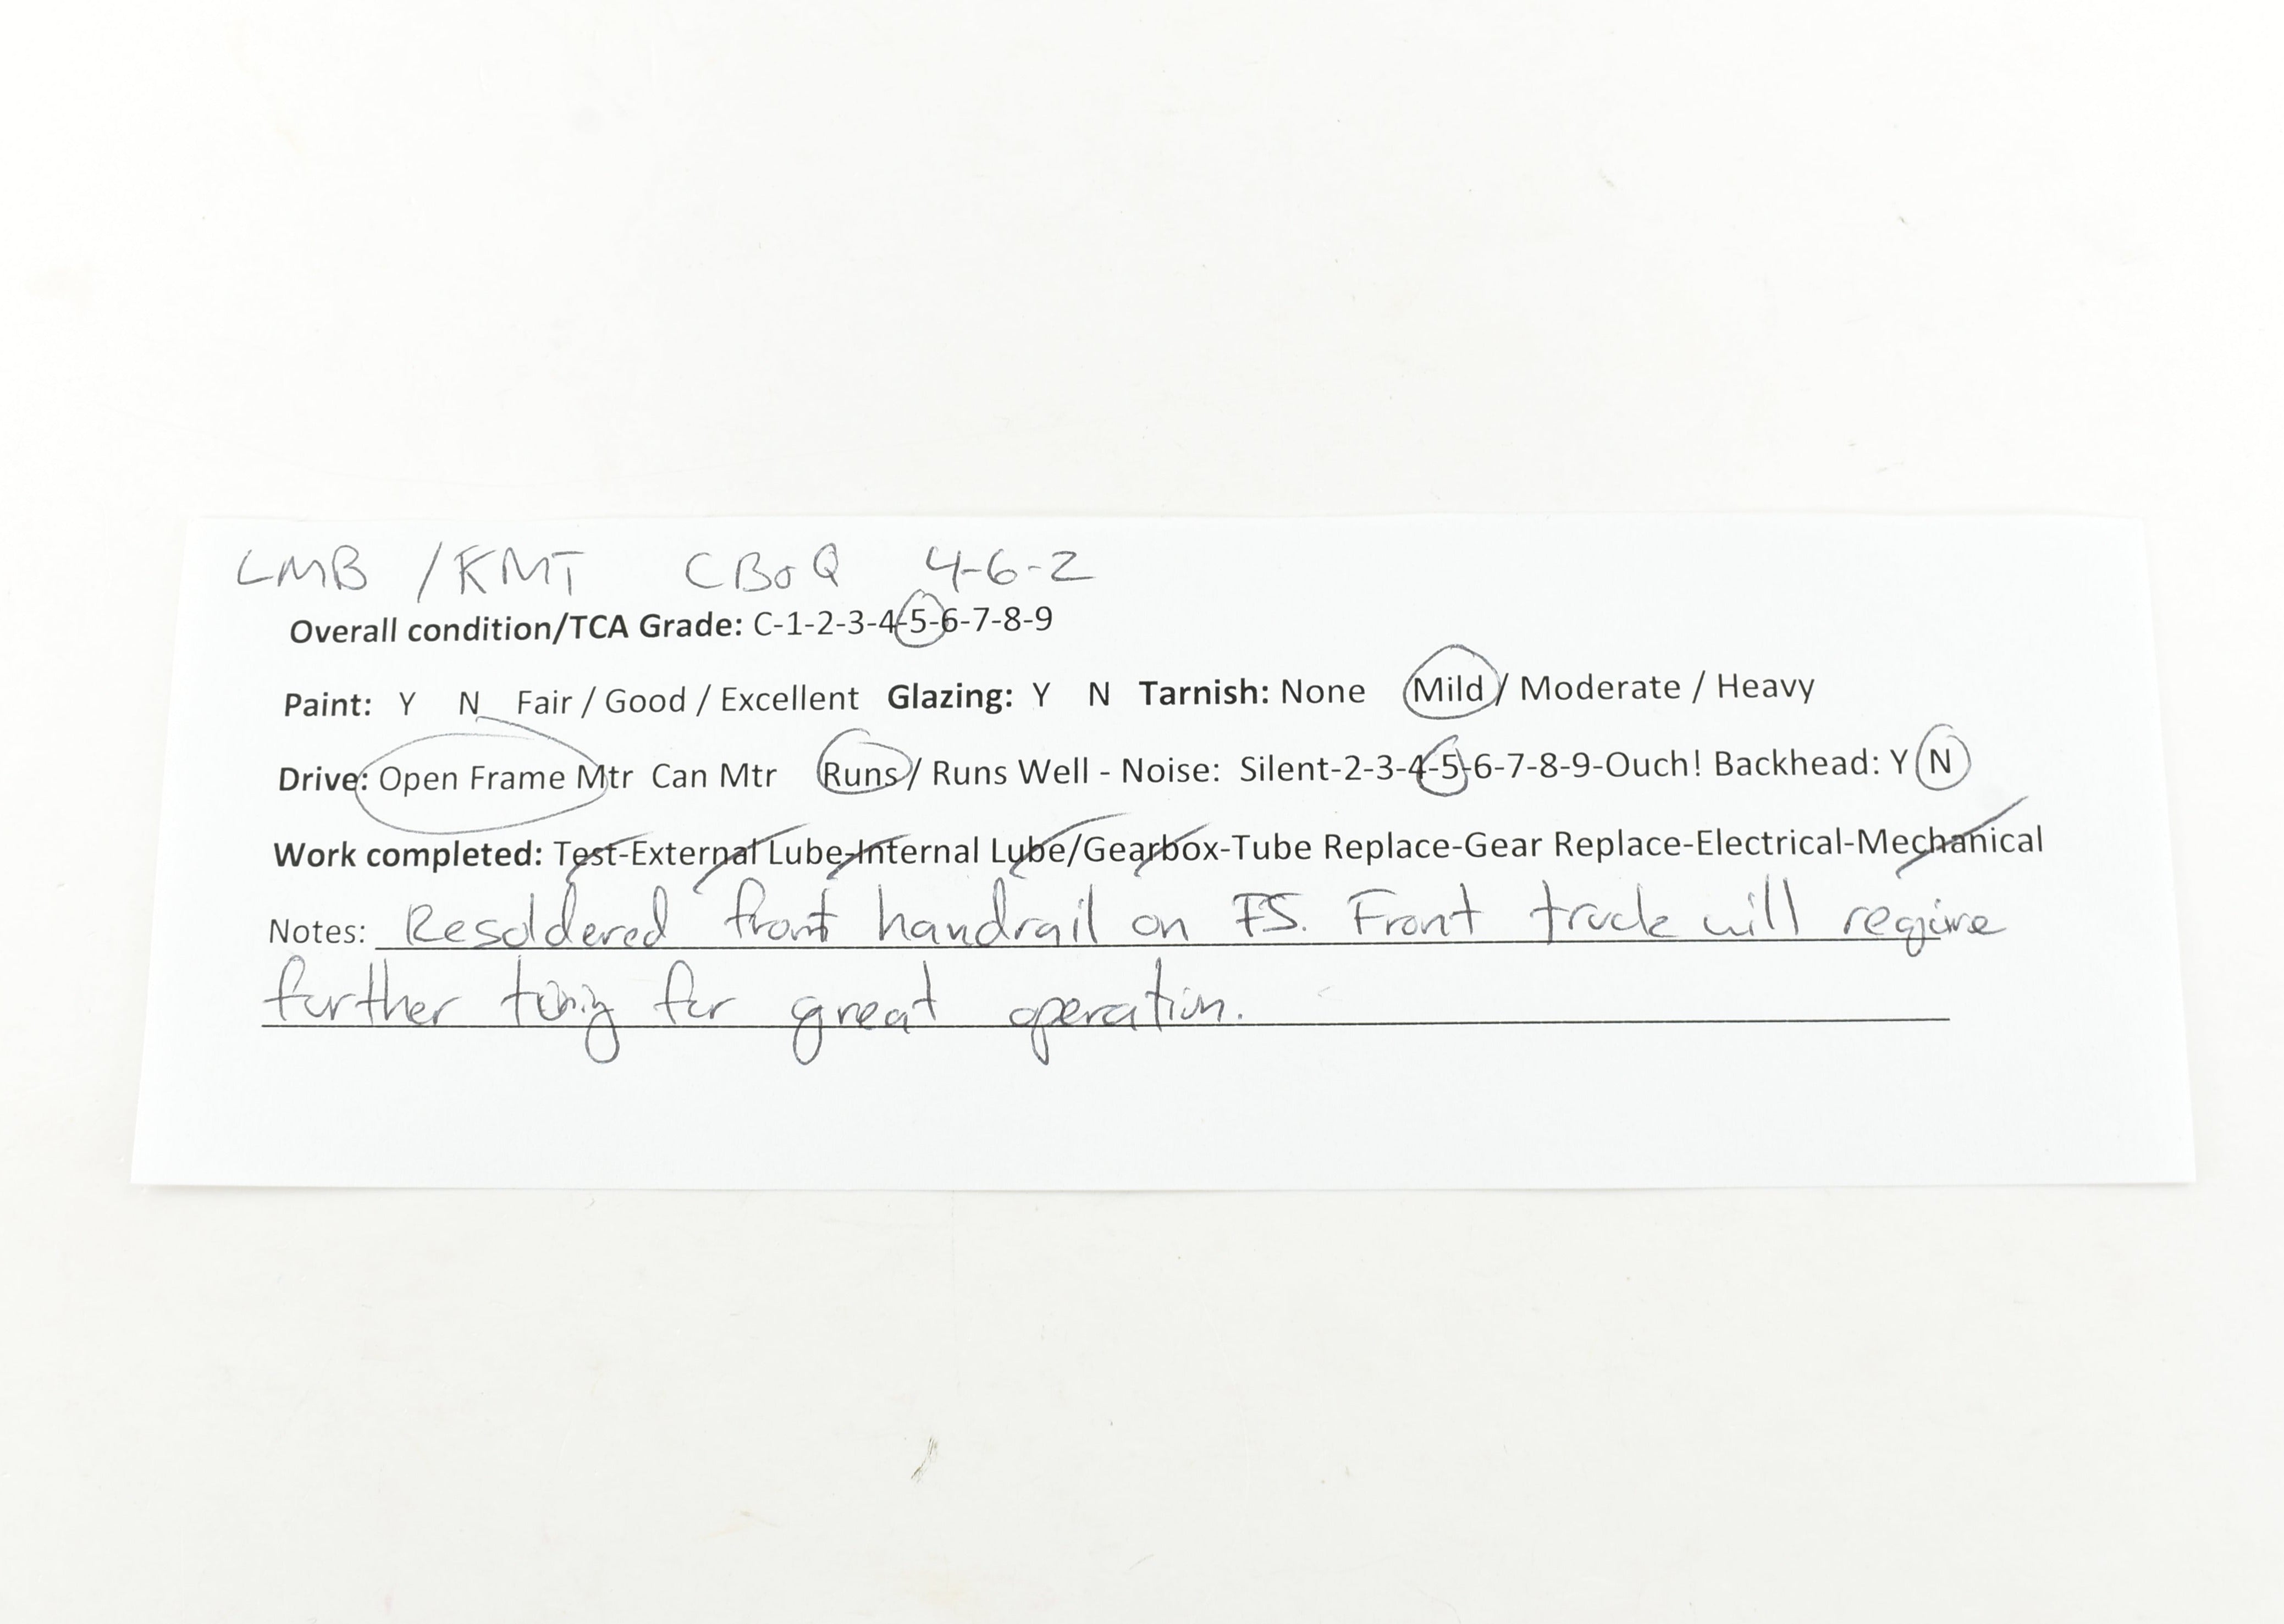 LMB / KMT CB&Q 4-6-2
Overall condition/TCA Grade: C-1-2-3-4-5-6-7-8-9
Paint: Y N Fair / Good / Excellent Glazing: Y N Tarnish: None Mild / Moderate / Heavy
Drive: Open Frame Mtr Can Mtr Runs / Runs Well - Noise: Silent-2-3-4-5-6-7-8-9-Ouch! Backhead: Y N
Work completed: Test-External Lube-Internal Lube/Gearbox-Tube Replace-Gear Replace-Electrical-Mechanical
Notes: Resoldered front handrail on FS. Front truck will require
further for great operation.